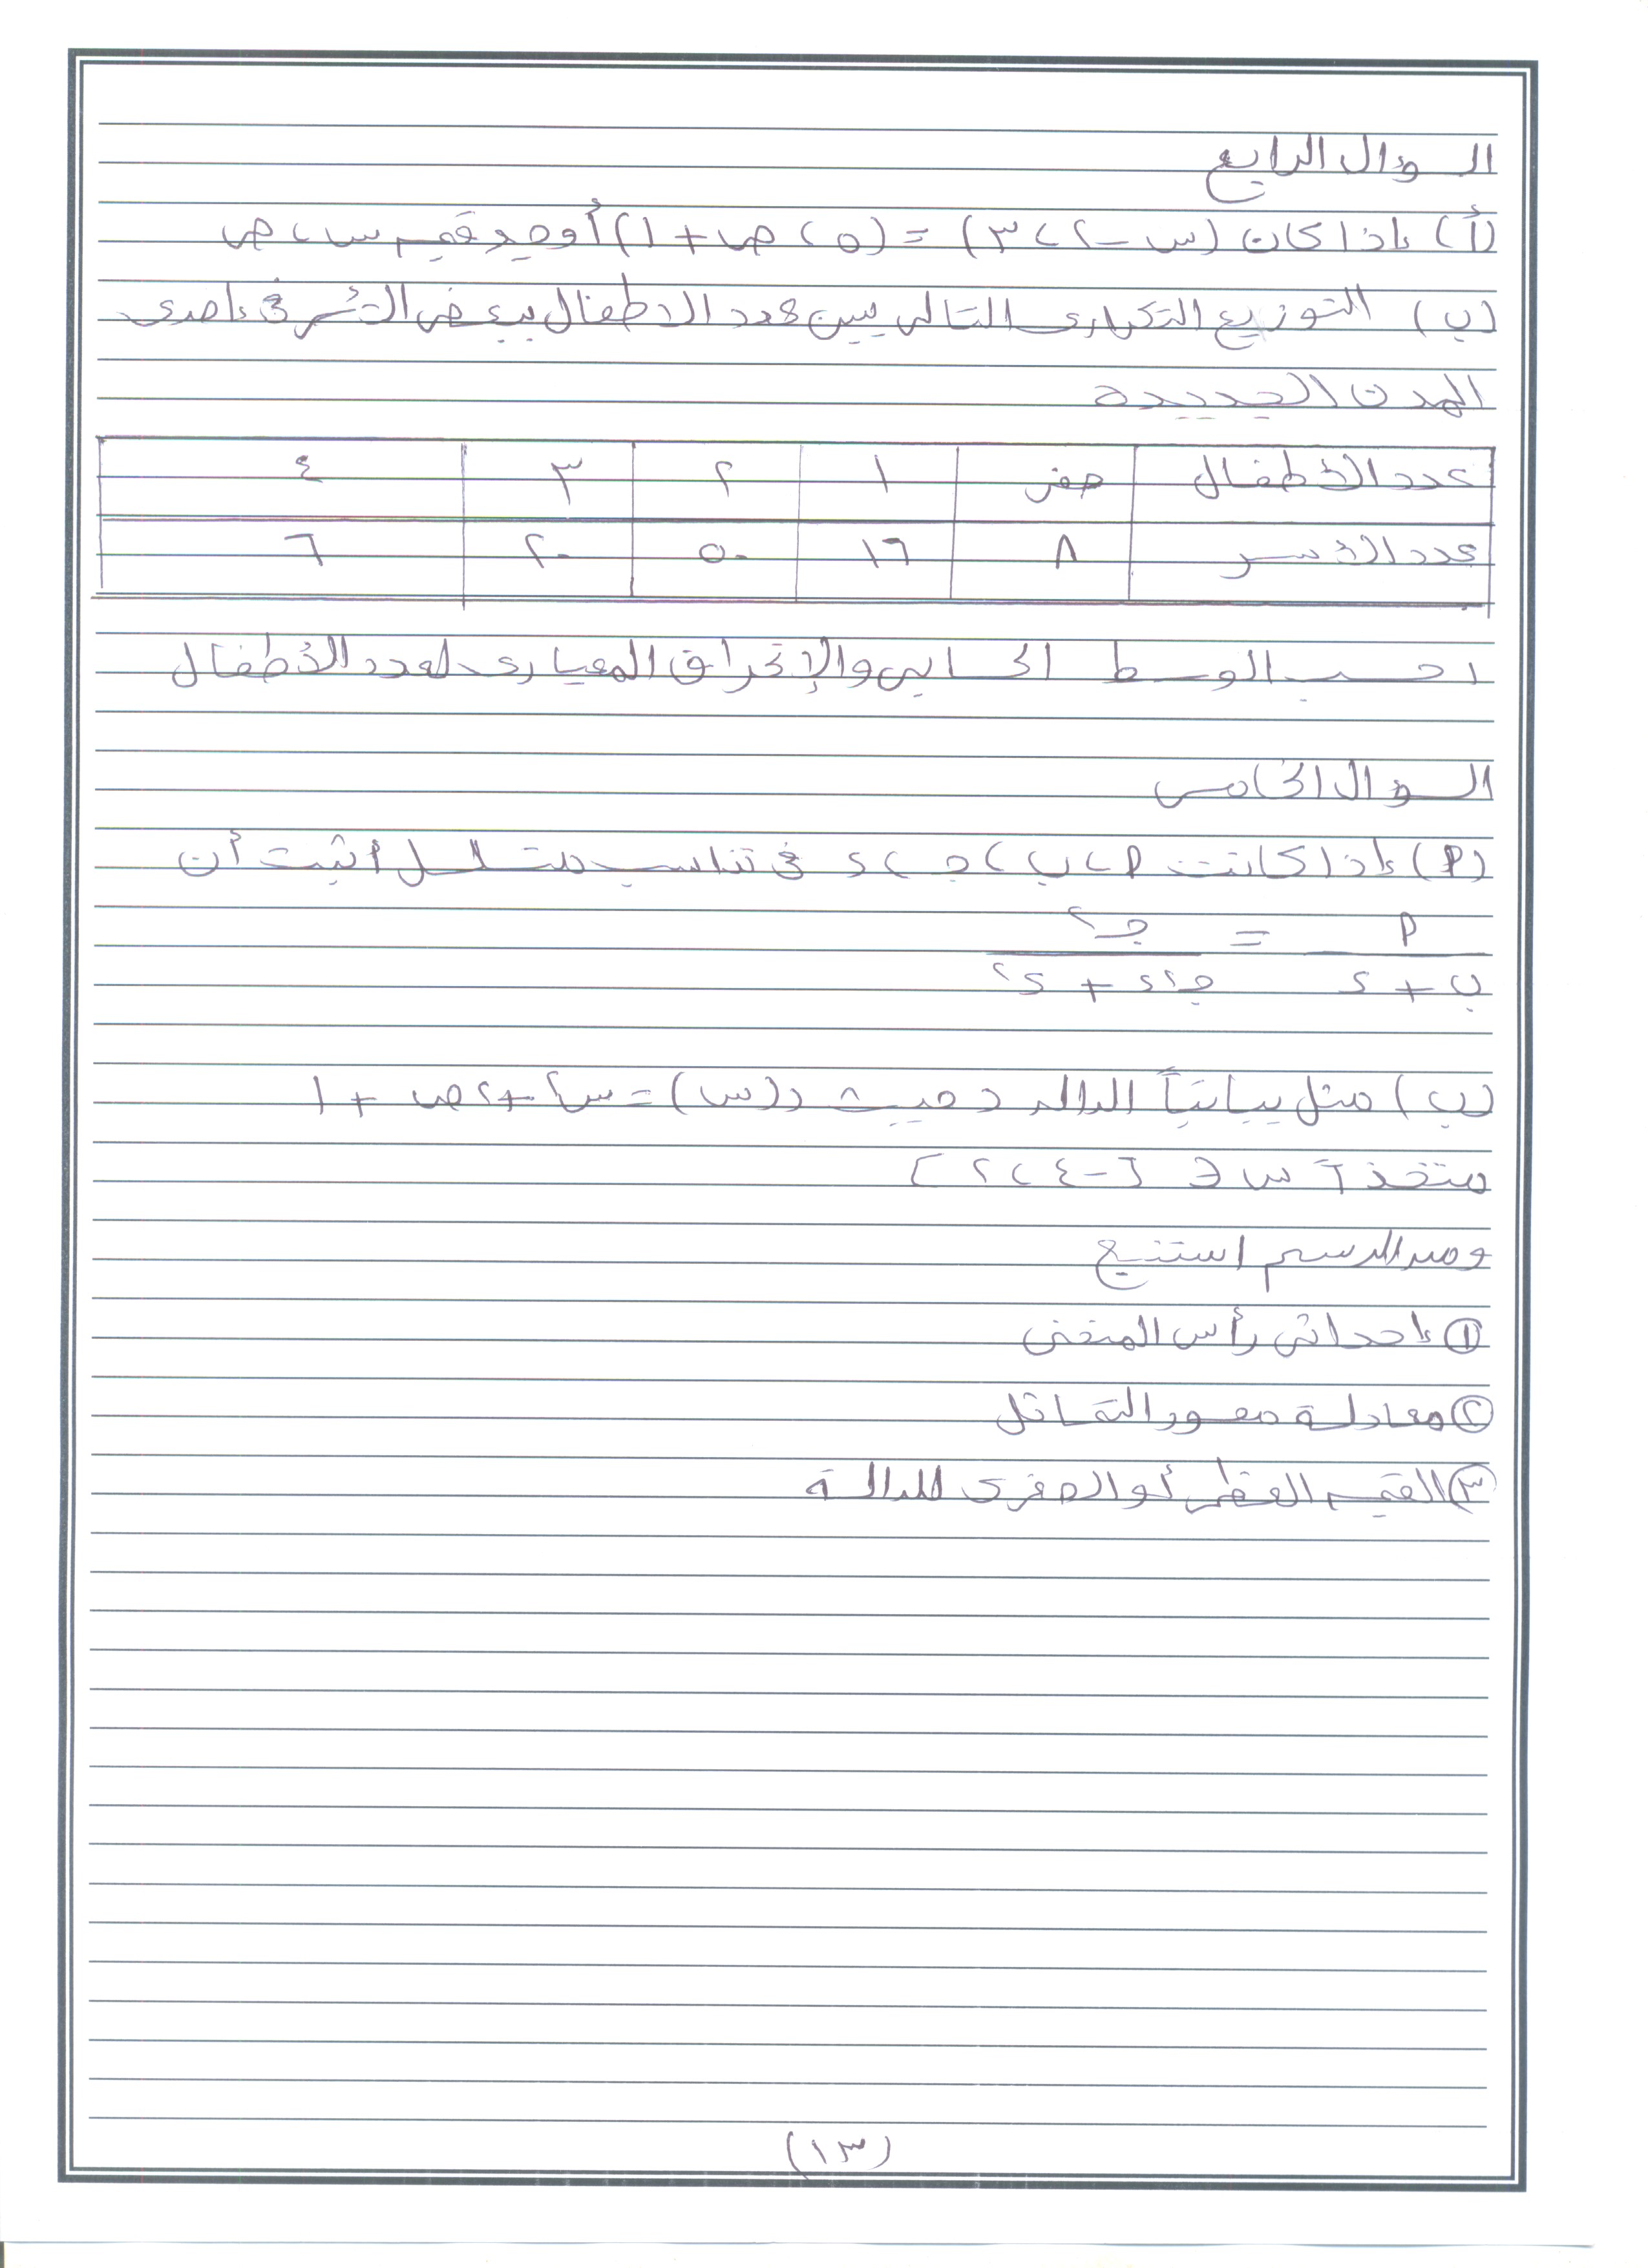 السؤال الرابع
(أ) إذا كان (س - ٢ ، ٣) = (٥ ، ص + ١) أوجد قيم س ، ص
(ب) التوزيع التكرارى التالى يبين عدد الاطفال ببعض الأسر فى إحدى
المدن الجديدة
عدد الأطفال صفر ١ ٢ ٣ ٤
عدد الأسر ٨ ١٦ ٥٠ ٢٠ ٦
احسب الوسط الحسابى والإنحراف المعيارى لعدد الأطفال
السؤال الخامس
(أ) إذا كانت أ ، ب ، جـ ، د فى تناسب متسلسل أثبت أن
أ = جـ٢
ب + د جـ٢د + د٢
(ب) مثل بيانياً الداله د حيث د(س) = س٢ + ٢ص + ١
متخذاً س ∈ [-٤ ، ٢]
ومن الرسم استنتج
① إحداثى رأس المنحنى
② معادلة محور التماثل
③ القيم العظمى أو الصغرى للدالة
(١٣)